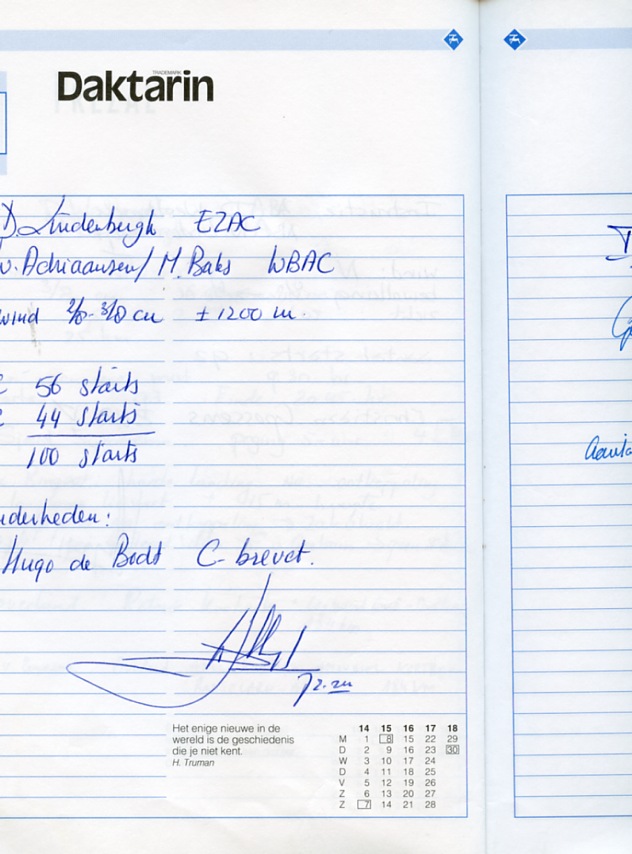 Daktarin
TRADEMARK
EZAC
v. Adriaansen / M. Baks WBAC
wind 2/8 - 3/8 cu ± 1200 m.
56 starts
44 starts
100 starts
nderheden:
Hugo de Bodt C-brevet.
Het enige nieuwe in de
wereld is de geschiedenis
die je niet kent.
H. Truman
14 15 16 17 18
M 1 8 15 22 29
D 2 9 16 23 30
W 3 10 17 24
D 4 11 18 25
V 5 12 19 26
Z 6 13 20 27
Z 7 14 21 28